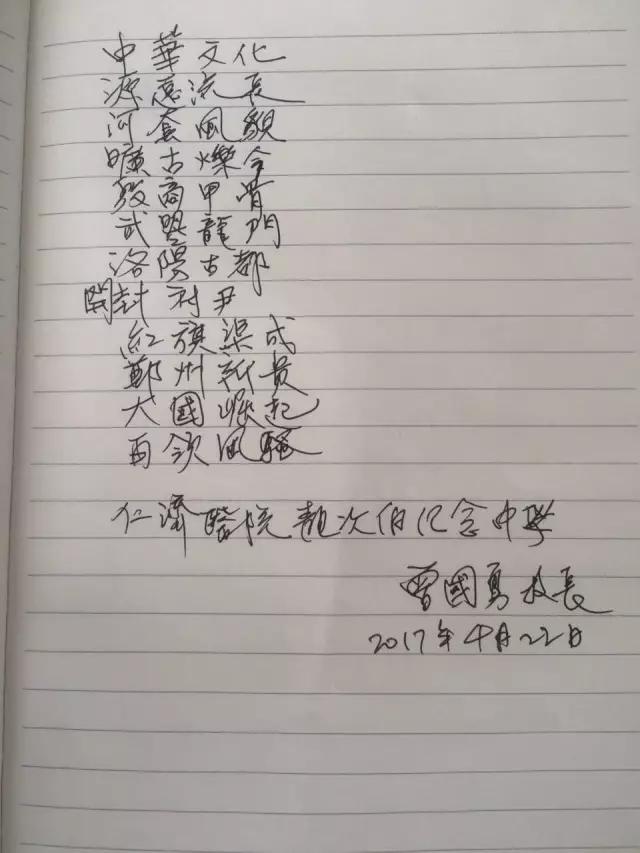 中華文化
源遠流長
河套風貌
曠古爍今
殷商甲骨
武曌龍門
洛陽古都
開封府尹
紅旗渠成
鄭州新貴
大國崛起
再領風騷
仁濟醫院靚次伯紀念中學
曾國勇校長
2017年4月22日